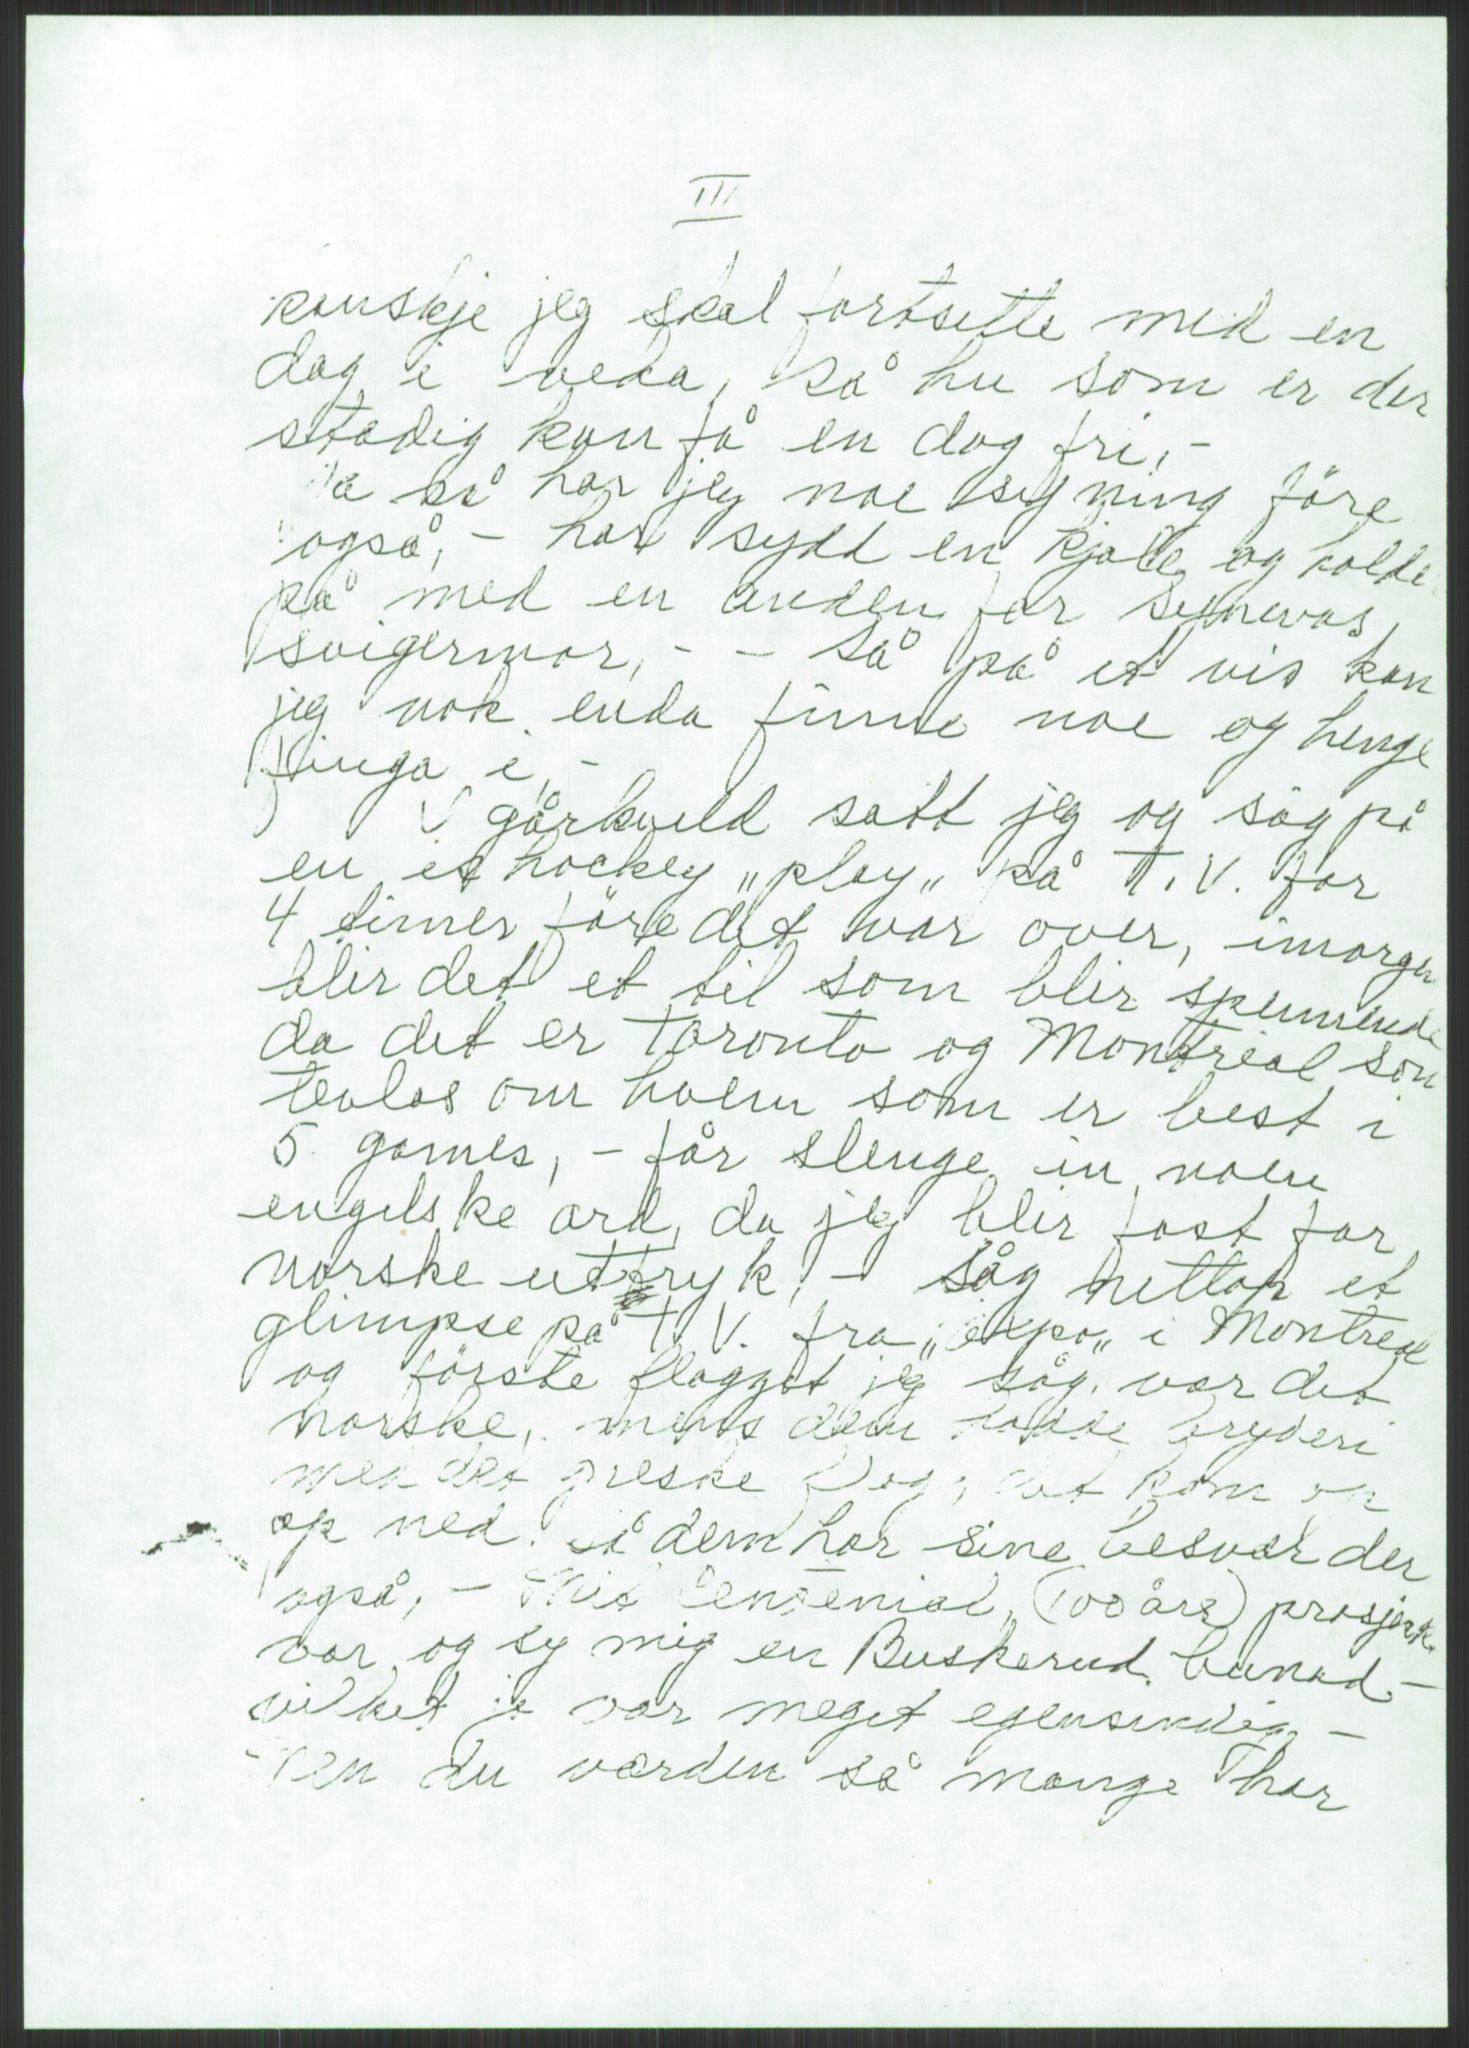 III
kanskje jeg skal fortsette med en
dag i veka, så hu som er der
stadig kan få en dag fri, -
Ja så har jeg noe sying före
også, - har sydd en kjole og holde
på med en anden for Synevas
svigermor, - - så på et vis kan
jeg nok enda finne noe og henge
finga i, -
I gårkveld satt jeg og såg på
en is hockey „play„ på T.V. for
4 timer före det var over, imorgen
blir det et til som blir spennende
da det er Toronto og Montreal som
tevlas om hvem som er best i
5 games, - får slenge in noen
engelske ord, da jeg blir fast for
norske uttryk, - Såg nettop et
glimpse på T.V. fra „Expo„ i Montreal
og förste flagget jeg såg var det
norske, mens dem hadde bryderi
med det greske flag, det kom
op ned. Så dem har sine besvær der
også, - Mit Centenial, (100 års) prosjekt
var og sy mig en Buskerud bunad, -
vilket je var meget egensindig -
Men du værden så mange Thar